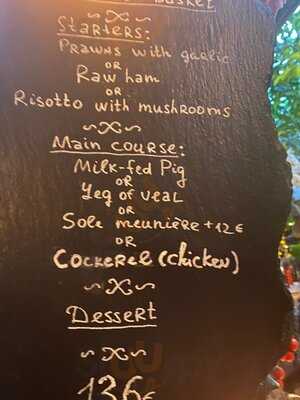 Basket
Starters:
Prawns with garlic
OR
Raw ham
OR
Risotto with mushrooms
Main course:
Milk-fed Pig
OR
Leg of veal
OR
Sole meunière + 12€
OR
Cockerel (chicken)
Dessert
136€